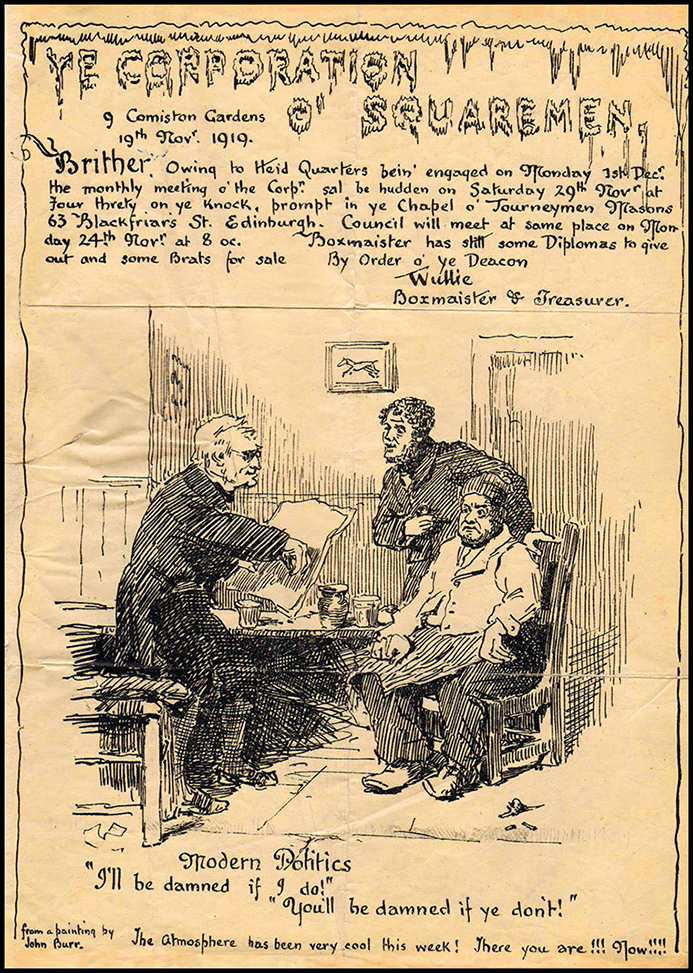 YE CORPORATION
O' SQUAREMEN.
9 Comiston Gardens
19th Novr. 1919.
Brither, Owing to Heid Quarters bein' engaged on Monday 1st Decr.
the monthly meeting o' the Corpn. sal be hudden on Saturday 29th Novr at
Four threty on ye Knock, prompt in ye Chapel o' Journeymen Masons
63 Blackfriars St. Edinburgh. Council will meet at same place on Mon
day 24th Novr. at 8 oc. Boxmaister has still some Diplomas to give
out and some Brats for sale By Order o' ye Deacon
Wullie
Boxmaister & Treasurer.
Modern Politics
"I'll be damned if I do!"
"You'll be damned if ye don't!"
from a painting by
John Burr.
The Atmosphere has been very cool this week! There you are!!! Now!!!!